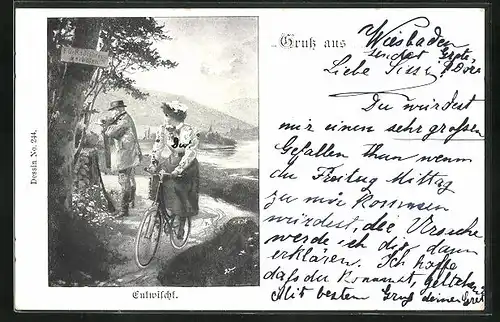 Dessin No. 244.
Gruß aus Wiesbaden
sendet Grete,
Liebe Sissi! Dora
Du würdest
mir einen sehr großen
Gefallen thun wenn
du Freitag Mittag
zu mir kommen
würdest, die Ursache
werde ich dir dann
erklären. Ich hoffe
daß du kommst,
Mit besten Gruß deine Grete
Du
Entwischt.